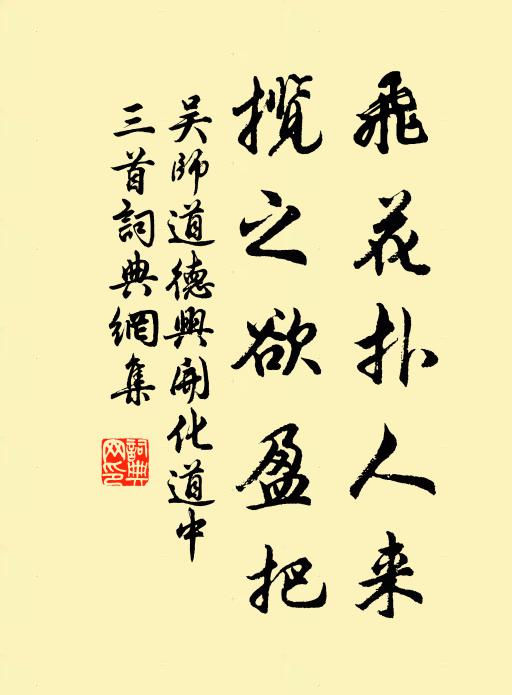 飛花扑人来
揽之欲盈把
吴師道德興開化道中
三首詞典網集
詞典網印